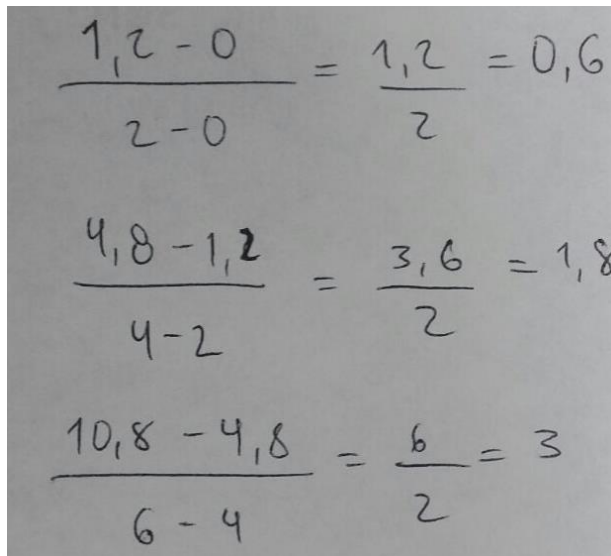 1,2 - 0 / 2 - 0 = 1,2 / 2 = 0,6
4,8 - 1,2 / 4 - 2 = 3,6 / 2 = 1,8
10,8 - 4,8 / 6 - 4 = 6 / 2 = 3